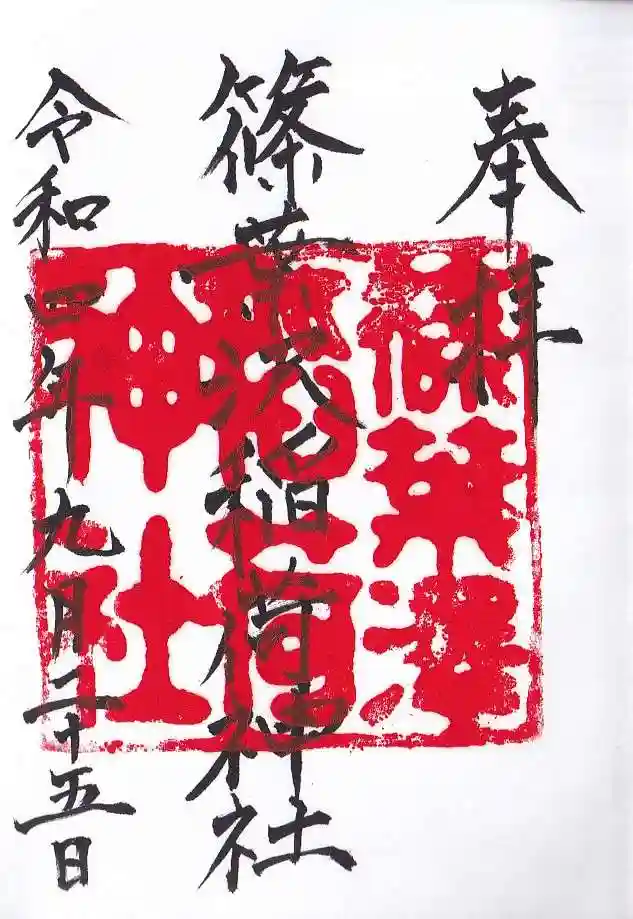 奉拝
篠葉沢稲荷神社
令和四年九月二十五日
篠葉澤
稲荷
神社